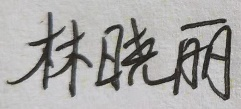 林晓丽